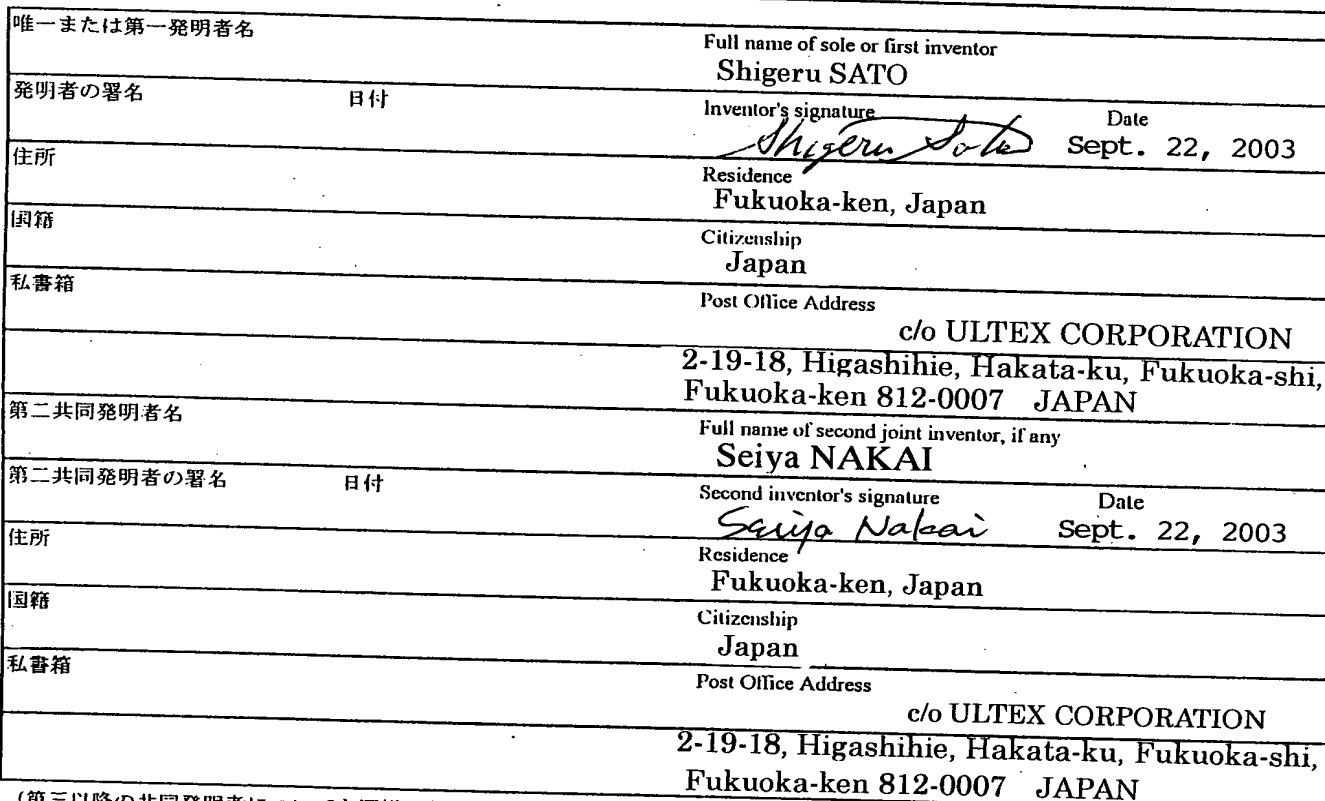 唯一または第一発明者名
Full name of sole or first inventor
Shigeru SATO
発明者の署名 日付
Inventor's signature Date
Shigeru Sato Sept. 22, 2003
住所
Residence
Fukuoka-ken, Japan
国籍
Citizenship
Japan
私書箱
Post Office Address
c/o ULTEX CORPORATION
2-19-18, Higashihie, Hakata-ku, Fukuoka-shi,
Fukuoka-ken 812-0007 JAPAN
第二共同発明者名
Full name of second joint inventor, if any
Seiya NAKAI
第二共同発明者の署名 日付
Second inventor's signature Date
Seiya Nakai Sept. 22, 2003
住所
Residence
Fukuoka-ken, Japan
国籍
Citizenship
Japan
私書箱
Post Office Address
c/o ULTEX CORPORATION
2-19-18, Higashihie, Hakata-ku, Fukuoka-shi,
Fukuoka-ken 812-0007 JAPAN